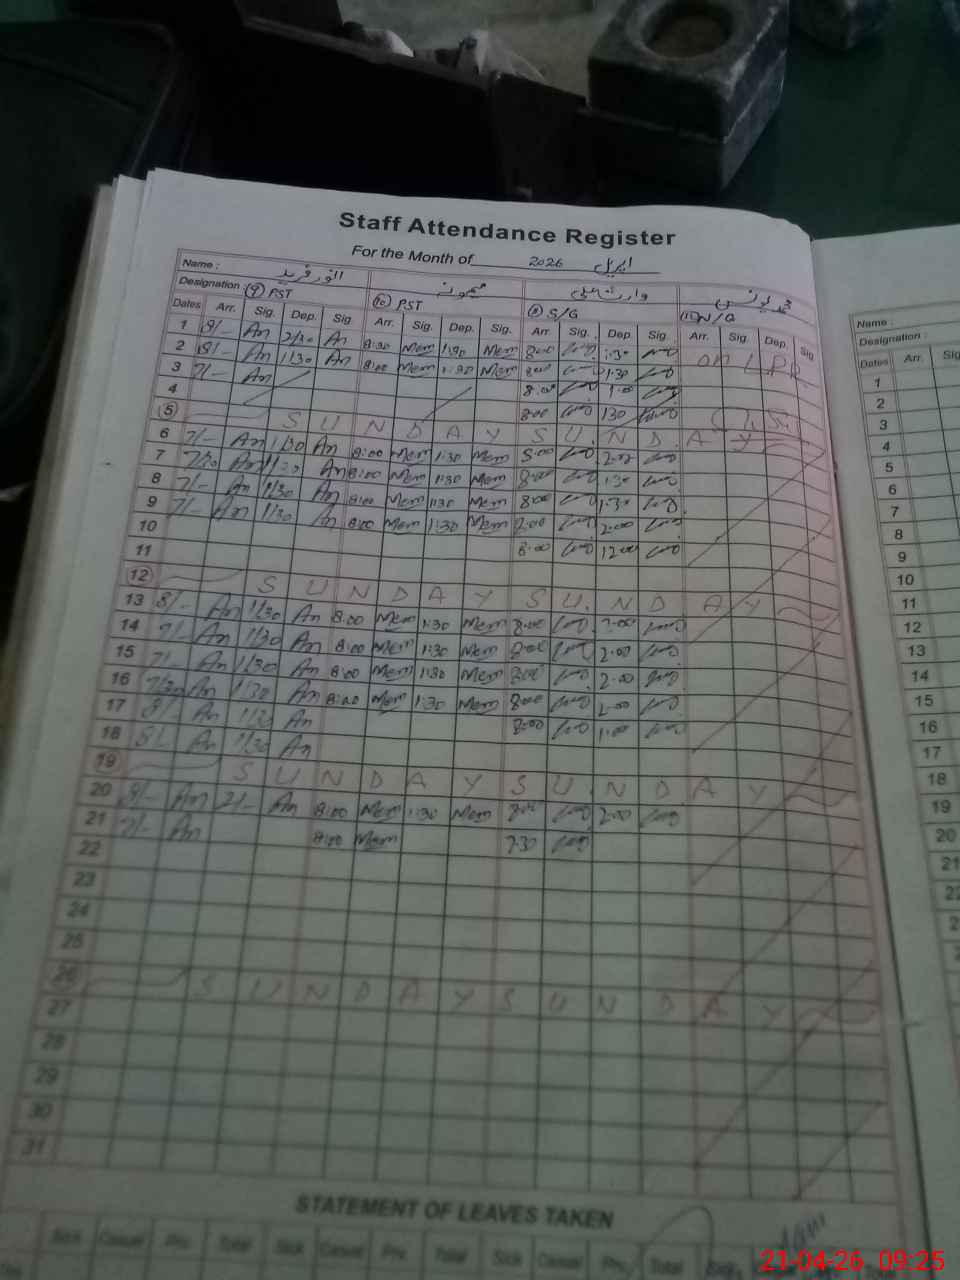 Staff Attendance Register
For the Month of 2026 اپریل
Name : انور فرید میمونہ وارث علی محمد یونس
Designation : (9) PST (10) PST S/G N/G
Dates Arr. Sig. Dep. Sig. Arr. Sig. Dep. Sig. Arr. Sig. Dep. Sig. Arr. Sig. Dep. Sig
1 8/- An 2/30 An 8:30 Mem 1:30 Mem 8:00 1:30 on LPR
2 8/- An 1/30 An 8:00 Mem 1:30 Mem 8:00 1:30
3 7/- An 8:00 1:00
4 8:00 130
5 SUNDAY SUNDAY
6 7/- An 1/30 An 8:00 Mem 1:30 Mem 8:00 2:00
7 7/30 An 1/30 An 8:00 Mem 1:30 Mem 8:00 1:30
8 7/- An 1/30 An 8:00 Mem 1:30 Mem 8:00 1:30
9 7/- An 1/30 An 8:00 Mem 1:30 Mem 2:00
10 8:00 12:00
11
12 SUNDAY SUNDAY
13 8/- An 1/30 An 8:00 Mem 1:30 Mem 8:00 2:00
14 7/- An 1/30 An 8:00 Mem 1:30 Mem 8:00 2:00
15 7/- An 1/30 An 8:00 Mem 1:30 Mem 8:00 2:00
16 7/30 An 1/30 An 8:00 Mem 1:30 Mem 8:00 2:00
17 8/- An 1/30 An 8:00 1:00
18 8/- An 1/30 An
19 SUNDAY SUNDAY
20 8/- An 2/- An 8:00 Mem 1:30 Mem 8:00 2:00
21 7/- An 8:00 Mem 7:30
22
23
24
25
26 SUNDAY SUNDAY
27
28
29
30
31
STATEMENT OF LEAVES TAKEN
Sick Casual Priv. Total Sick Casual Priv. Total Sick Casual Priv. Total Sick
Name :
Designation :
Dates Arr. Sig
1
2
3
4
5
6
7
8
9
10
11
12
13
14
15
16
17
18
19
20
21
22
21-04-26 09:25